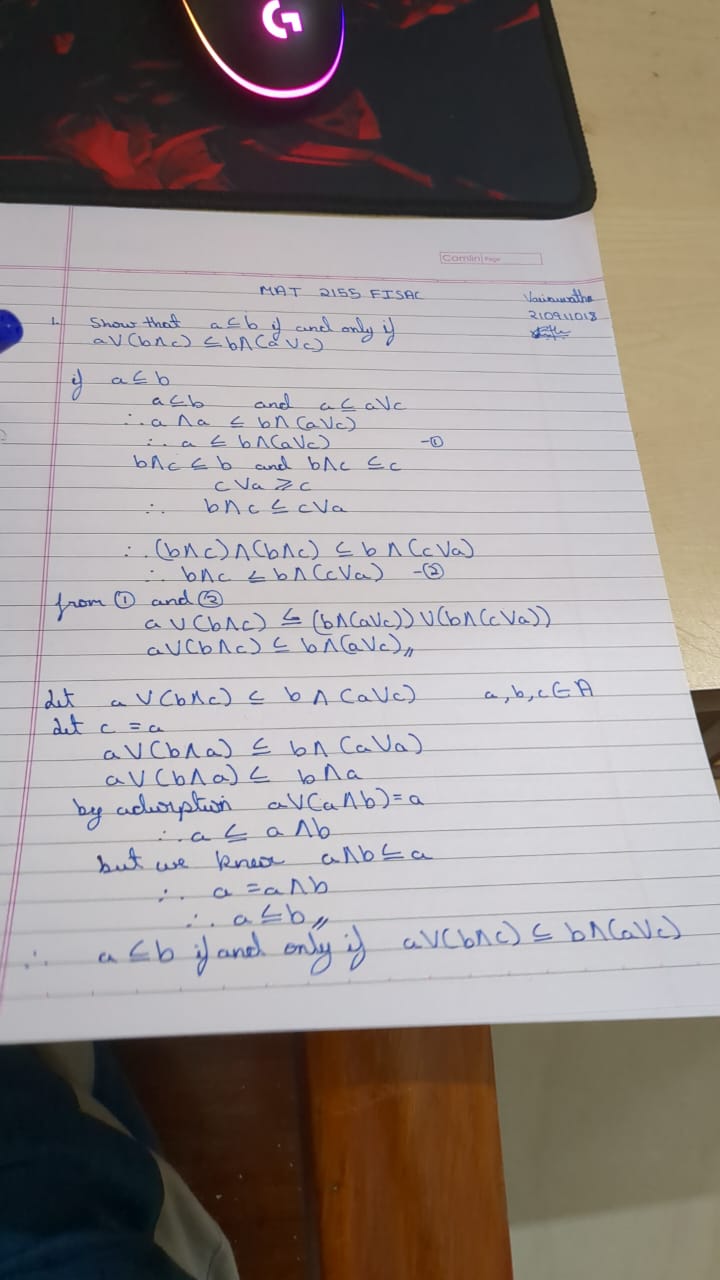 Camlin Page
MAT 2155 FISAC
210911018
1. Show that a ≤ b if and only if
a∨(b∧c) ≤ b∧(a∨c)
if a ≤ b
a ≤ b and a ≤ a∨c
∴ a∧a ≤ b∧(a∨c)
∴ a ≤ b∧(a∨c) -①
b∧c ≤ b and b∧c ≤ c
c∨a ≥ c
∴ b∧c ≤ c∨a
∴ (b∧c)∧(b∧c) ≤ b∧(c∨a)
∴ b∧c ≤ b∧(c∨a) -②
from ① and ②
a∨(b∧c) ≤ (b∧(a∨c))∨(b∧(c∨a))
a∨(b∧c) ≤ b∧(a∨c)//
let a∨(b∧c) ≤ b∧(a∨c) a,b,c ∈ A
let c = a
a∨(b∧a) ≤ b∧(a∨a)
a∨(b∧a) ≤ b∧a
by adsorption a∨(a∧b)=a
∴ a ≤ a∧b
but we know a∧b ≤ a
∴ a = a∧b
∴ a ≤ b//
∴ a ≤ b if and only if a∨(b∧c) ≤ b∧(a∨c)